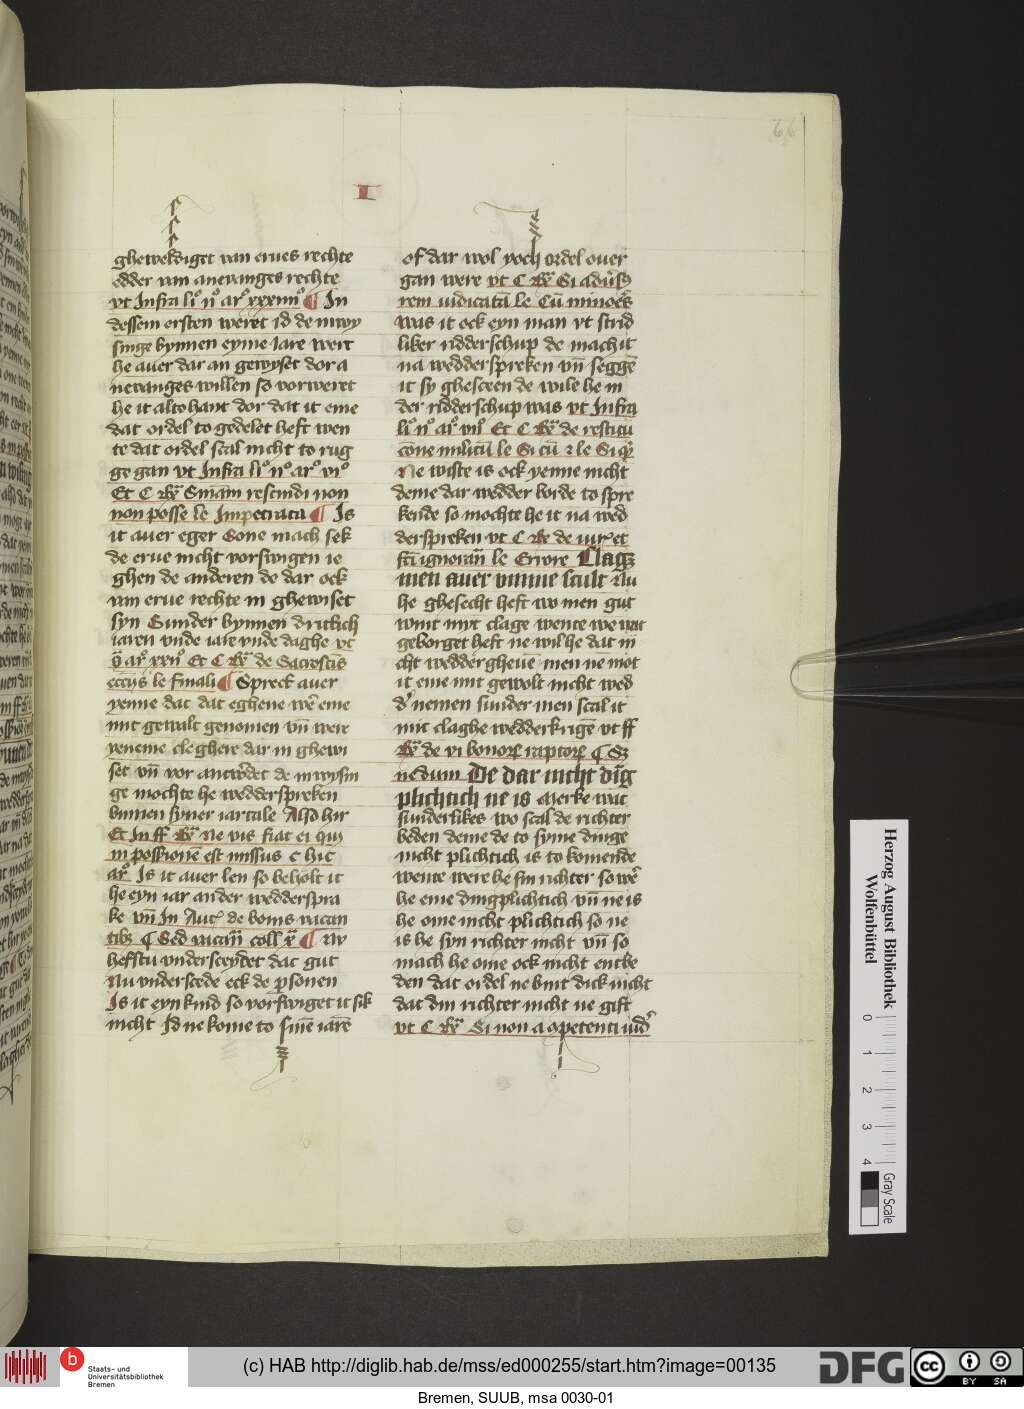 66
I
gheweldiget van erues rechte
odder van anevanges rechte
vt Infra li° n° ar° xxxiiii° ¶ In
dessem ersten weret id de inwy
singe bynnen eyme Jare wert
he auer dar an gewyset dor a
nevanges willen so vorweret
he it altohant dor dat it eme
dat ordel to gedelet heft wen
te dat ordel scal nicht to rug
ge gan vt Infra li° n° ar° vi°
Et C Rr̄ Snīam rescindi non
non posse le Impetrata ¶ Is
it auer eger Sone mach sek
de erue nicht vorswigen ie
ghen de anderen de dar ock
van erue rechte in ghewiset
syn Sunder bynnen drittich
iaren vnde iare vnde daghe vt
ar° xxii° Et C Rr̄ de Sacrosctīs
ecccijs le finali ¶ Spreckt auer
yenne dat dat eghene wē eme
mit gewalt genomen vn̄ were
yeneme cleghere dar in ghewi
set vn̄ vor antwerdet de inwysin
ge mochte he wedderspreken
bynnen syner iartale Also hir
Et In ff Rr̄ Ne vis fiat ei qui
in possionē est missus c hic
ar° Is it auer len so beholt it
he eyn iar ander weddersprа
ke vn̄ In Auc̄ de bonis vacan
tibȝ ¶ Sed vacan̄ coll ¶ Nv
hefstu vndersceydet dat gut
Nu vnderscede eck de personen
Is it eyn kind so vorswiget it sik
nicht Id ne kome to sinē iarē
of dar wol yoch ordel ouer
gan were vt C Rr̄ Si aduersꝰ
rem iudicatā le Cū minores
Was it ock eyn man vt strid
liker ridderschup de mach it
na wedderspreken vn̄ seggē
it sy ghesceen de wile he in
der ridderschup was vt Infra
li° n° ar° viii° Et C Rr̄ de restitu
cōne militū le Si cū ⁊ le Si
Ne wiste is ock yenne nicht
deme dar wedder borde to spre
kende so mochte he it na wed
derspreken vt C Rr̄ de iurꝭ et
fcti ignoran̄ le Errore Clagȝ
men auer vmme scult Nu
he ghesecht heft wo men gut
wint myt clage wente we wat
geborget heft ne wil he dat ni
cht wedder gheuē men ne mot
it eme mit gewolt nicht wed
d' nemen sunder men scal it
mit claghe wedderkrigē vt ff
Rr̄ de vi bonorꝝ raptorꝝ ¶ Sȝ
nedum De dar nicht ding
plichtich ne is Merke wat
sunderlikes wo scal de richter
beden deme de to syme dinge
nicht plichtich is to komende
wente were he sin richter so wē
he eme dingplichtich vn̄ ne is
he ome nicht plichtich so ne
is he syn richter nicht vn̄ so
mach he ome ock nicht entbe
den dat ordel ne bint dick nicht
dat din richter nicht ne gift
vt C Rr̄ Si non a opetenti iud'
Herzog August Bibliothek
Wolfenbüttel
0 1 2 3 4
Gray Scale
b
Staats- und
Universitätsbibliothek
Bremen
(c) HAB http://diglib.hab.de/mss/ed000255/start.htm?image=00135
DFG
cc BY SA
Bremen, SUUB, msa 0030-01